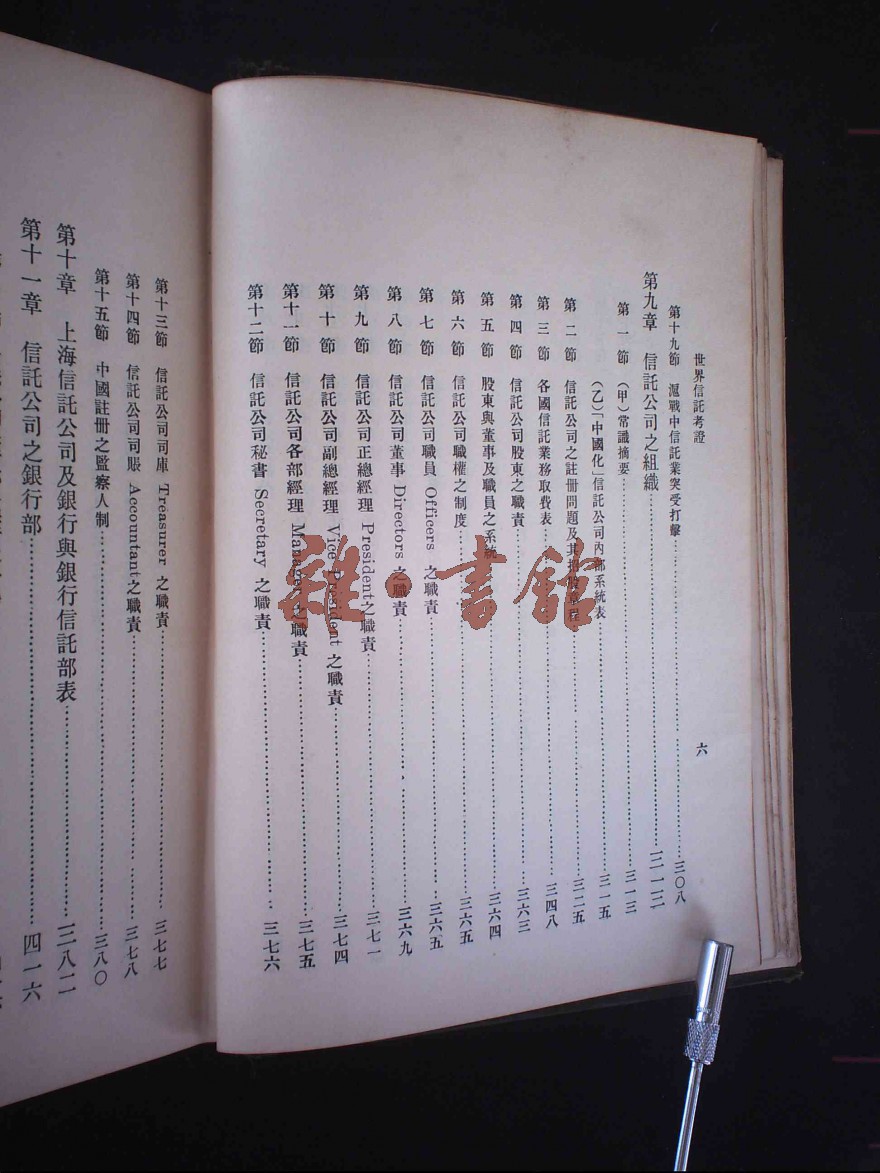 世界信託考證
六
第十九節 滬戰中信託業突受打擊 三〇八
第九章 信託公司之組織 三一三
第一節 (甲)常識摘要 三一三
(乙)「中國化」信託公司內部系統表 三一五
第二節 信託公司之註冊問題及其招股章程 三二五
第三節 各國信託業務取費表 三四八
第四節 信託公司股東之職責 三六三
第五節 股東與董事及職員之系統 三六四
第六節 信託公司職權之制度 三六五
第七節 信託公司職員 Officers 之職責 三六五
第八節 信託公司董事 Directors 之職責 三六九
第九節 信託公司正總經理 President 之職責 三七一
第十節 信託公司副總經理 Vice President 之職責 三七四
第十一節 信託公司各部經理 Manager 之職責 三七五
第十二節 信託公司秘書 Secretary 之職責 三七六
第十三節 信託公司司庫 Treasurer 之職責 三七七
第十四節 信託公司司賬 Accountant 之職責 三七八
第十五節 中國註冊之監察人制 三八〇
第十章 上海信託公司及銀行與銀行信託部表 三八二
第十一章 信託公司之銀行部 四一六
雜·書館